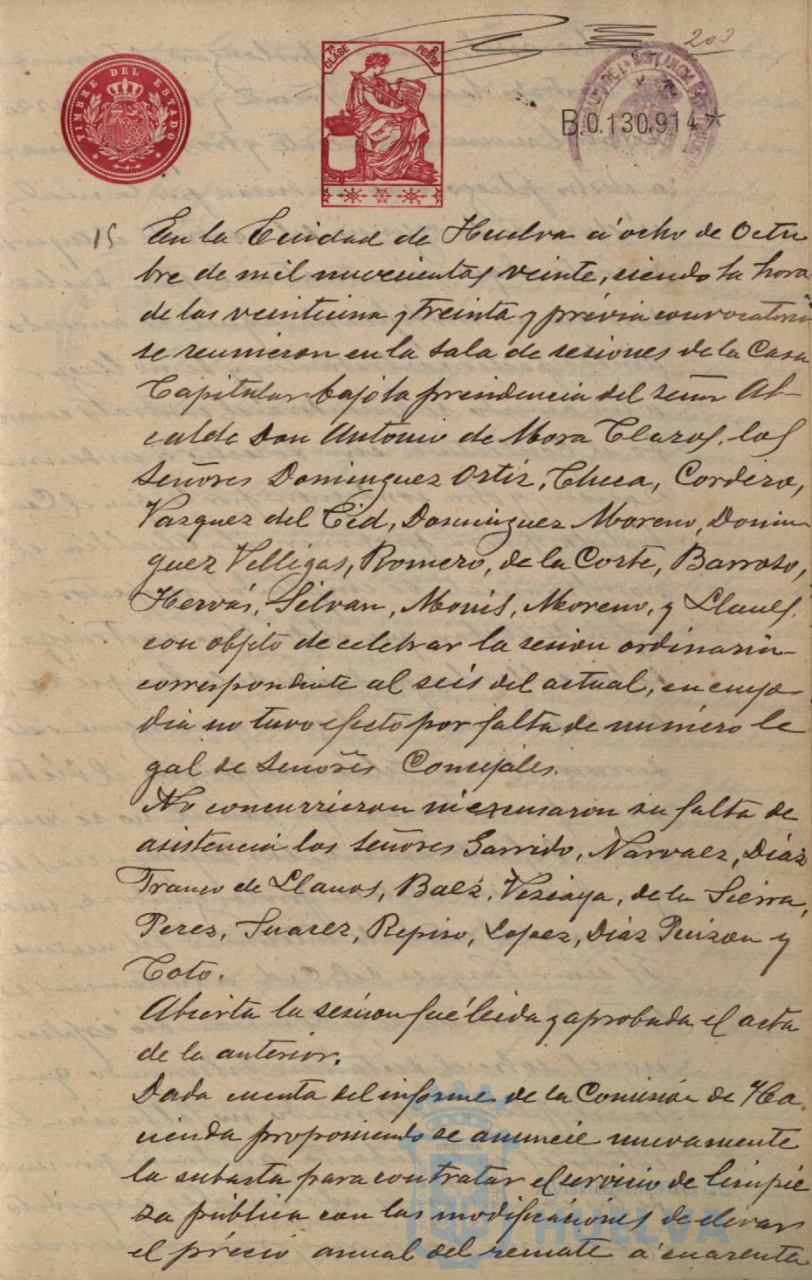 203
TIMBRE DEL ESTADO
7ª CLASE
PESETAS
B.0.130.914*
15 En la Ciudad de Huelva á ocho de Octu
bre de mil novecientos veinte, siendo la hora
de las veintiuna y treinta y prévia convocatoria
se reunieron en la sala de sesiones de la Casa
Capitular bajo la presidencia del señor Al-
calde Don Antonio de Mora Claros, los
Señores Dominguez Ortiz, Checa, Cordero,
Vazquez del Cid, Dominguez Moreno, Domin
guez Villegas, Romero, de la Corte, Barroso,
Hervás, Silvan, Monís, Moreno, y Llanes,
con objeto de celebrar la sesion ordinaria
correspondiente al seis del actual, en cuyo
dia no tuvo efecto por falta de número le
gal de Señores Concejales.
No concurrieron ni excusaron su falta de
asistencia los Señores Garrido, Narvaez, Díaz
Franco de Llanos, Baéz, Vizcaya, de la Sierra,
Perez, Suarez, Repiso, Lopez, Díaz Quizon y
Toto.
Abierta la sesion fué leida y aprobada el acta
de la anterior.
Dada cuenta del informe de la Comisión de Ha
cienda proponiendo se anuncie nuevamente
la subasta para contratar el servicio de limpie
za pública con las modificaciones de elevar
el précio anual del remate á cuarenta
HUELVA